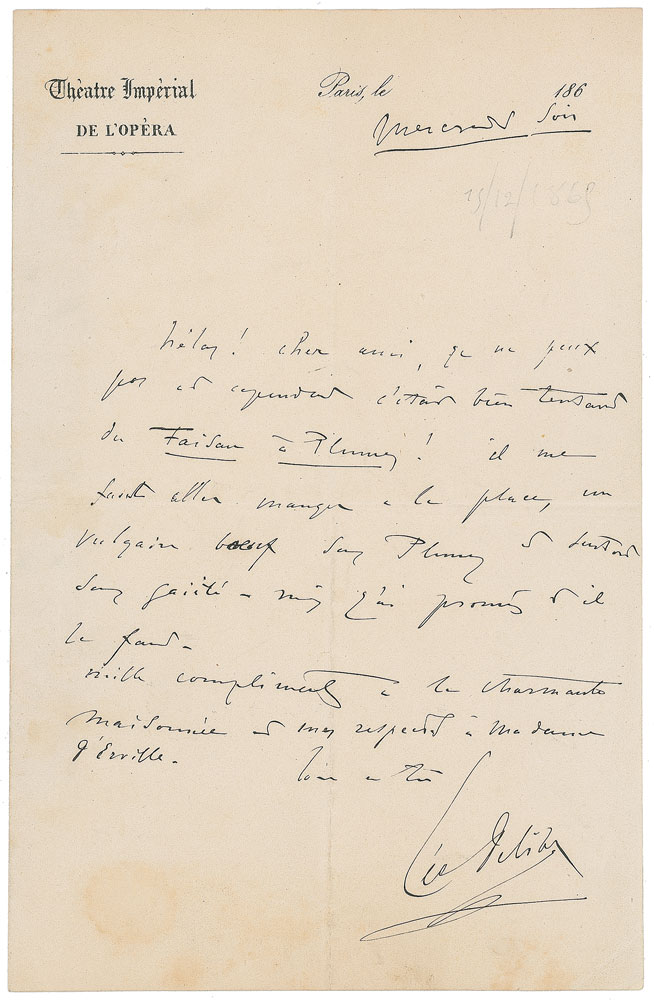 Théatre Impérial
DE L'OPÉRA
Paris, le 186
mercredi soir
15/12/1869
hélas! cher ami, je ne peux
pas et cependant c'était bien tentant
du Faisan à Plumes! il me
faut aller manger à la place, un
vulgaire boeuf sans Plumes et surtout
sans gaieté - mais j'ai promis et il
le faut -
mille compliments à la charmante
maisonnée et mes respects à Madame
d'Erville.
Tout à toi
Léo Delibes